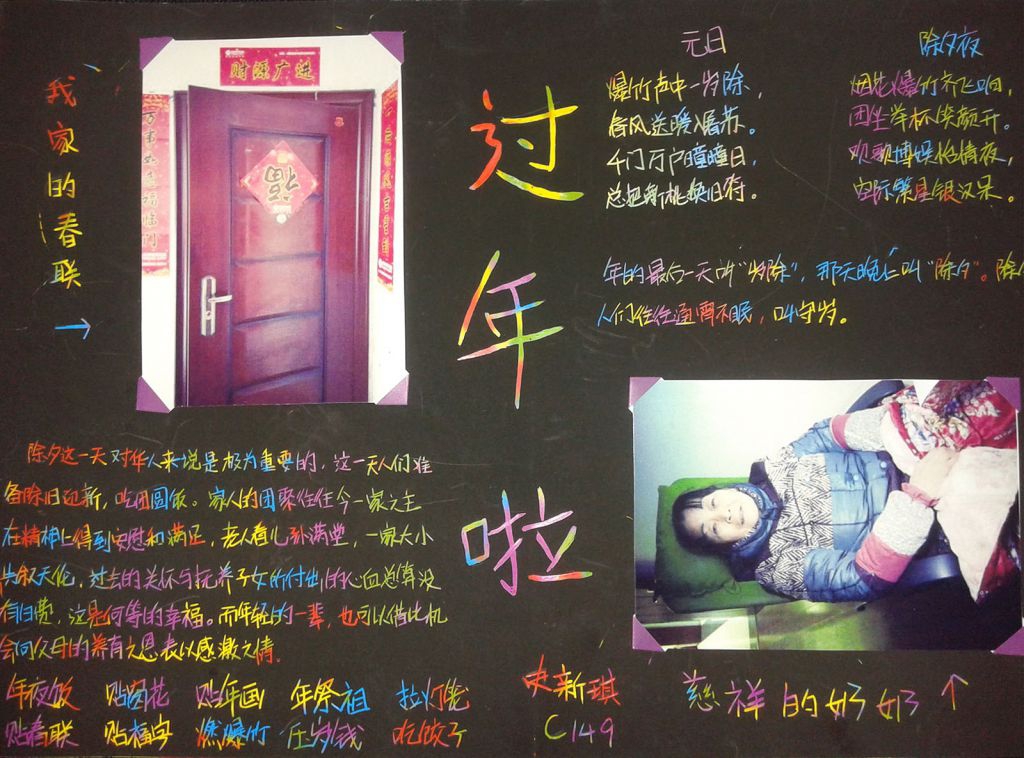 我家的春联
财源广进
福
过年啦
元日
爆竹声中一岁除，
春风送暖入屠苏。
千门万户曈曈日，
总把新桃换旧符。
除夕夜
烟花爆竹齐飞响，
团坐举杯笑颜开。
欢歌博娱怡情夜，
空际繁星银汉呆。
年的最后一天叫“岁除”，那天晚上叫“除夕”。除
人们往往通宵不眠，叫守岁。
除夕这一天对华人来说是极为重要的，这一天人们准
备除旧迎新，吃团圆饭。家人的团聚往往令一家之主
在精神上得到安慰和满足，老人看儿孙满堂，一家大小
共叙天伦，过去的关怀与抚养子女所付出的心血总算没
有白费，这是何等的幸福。而年轻的一辈，也可以借此机
会向父母的养育之恩表以感激之情。
年夜饭 贴窗花 贴年画 年祭祖 挂灯笼
贴春联 贴福字 燃爆竹 压岁钱 吃饺子
史新琪
C149
慈祥的奶奶